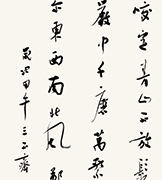 咬定青山不放鬆
巖中千磨萬擊
尔東西南北風 鄭
歲次甲午三齋